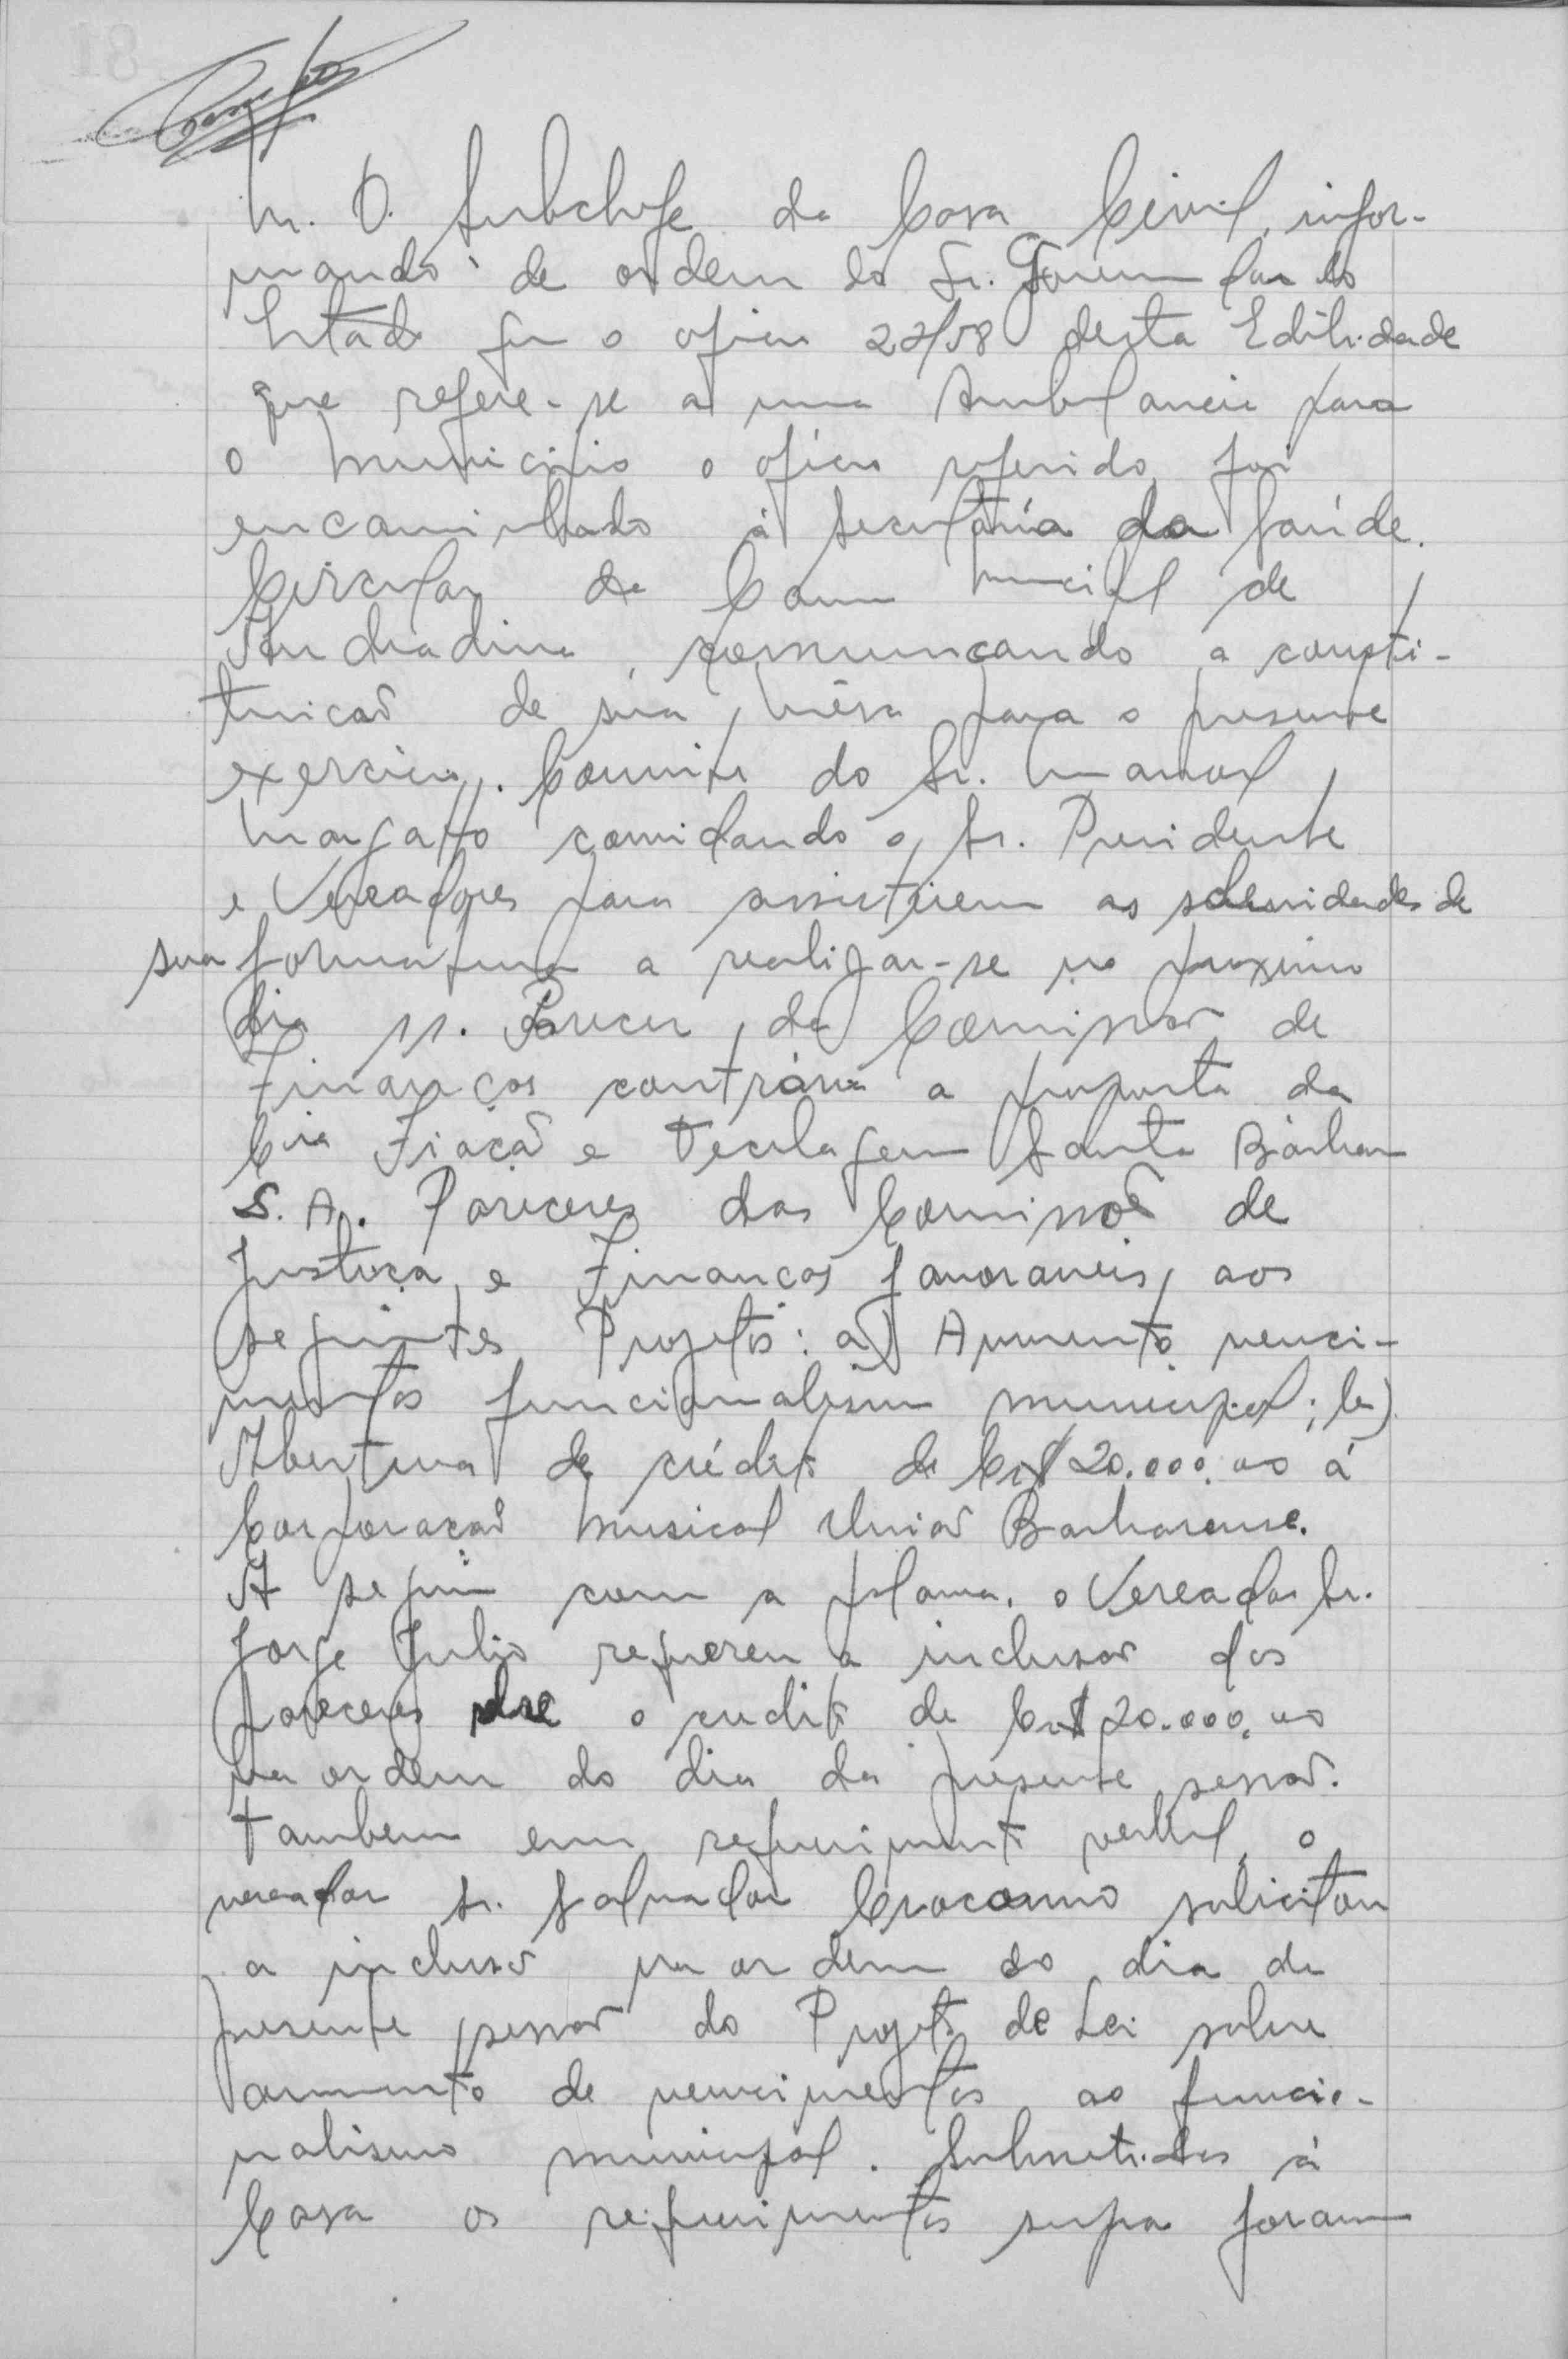 M. D. Subchefe da Casa Civil, infor-
mando de ordem do Sr. Governador do
Estado que o oficio 22/58 desta Edilidade
que refere-se a uma Ambulancia para
o Municipio o oficio referido foi
encaminhado á Secretária da Saúde.
Circular da Camara Municipal de
Andradina, comunicando a consti-
tuicaõ de sua Mêsa para o presente
exercicio. Convite do Sr. Manoel
convidando o Sr. Presidente
e Vereadores para assistirem as solenidades de
sua formatura a realizar-se no proximo
dia 11. Parecer da Comissaõ de
Finanças contrário a proposta da
Cia Fiaçaõ e Tecelagem Santa Bárbara
S. A. Pareceres das Comissoẽs de
Justiça e Finanças favoraveis, aos
seguintes Projetos: a) Aumento venci-
mentos funcionalismo municipal; b)
Abertura de crédito de Cr$ 20.000,00 á
Corporaçaõ Musical Uniaõ Barbarense.
A seguir com a palavra, o Vereador Sr.
Jorge Julio requereu a inclusaõ dos
pareceres sobre o credito de Cr$ 20.000,00
na ordem do dia da presente sessaõ.
Tambem em requerimento verbal, o
vereador Sr. Salvador solicitou
a inclusaõ na ordem do dia da
presente sessaõ do Projeto de Lei sobre
aumento de vencimentos ao funcio-
nalismo municipal. Submetidos á
Casa os requerimentos supra foram